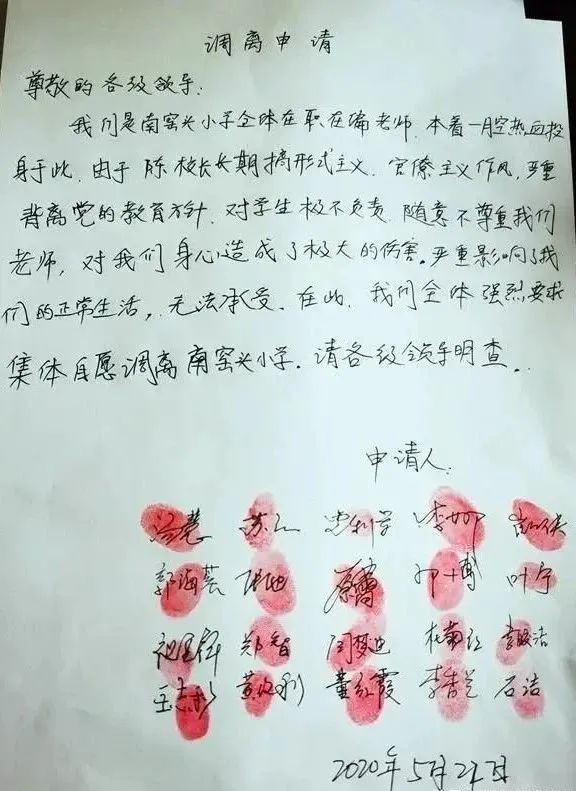 调离申请
尊敬的各级领导:
我们是南窑头小学全体在职在编老师.本着一腔热血投
身于此.由于陈校长长期搞形式主义.官僚主义作风,严重
背离党的教育方针.对学生极不负责.随意不尊重我们
老师,对我们身心造成了极大的伤害。严重影响了我
们的正常生活,无法承受.在此.我们全体强烈要求
集体自愿调离南窑头小学.请各级领导明查..
申请人:
李娜
郭海芸 叶宁
郑智 闫梦迪 杜菊红
董红霞 李杏兰 石洁
2020年5月27日